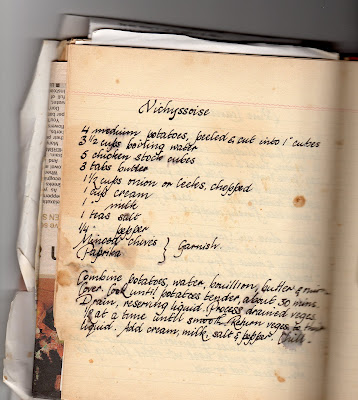 Vichyssoise
4 medium potatoes, peeled & cut into 1" cubes
3 1/2 cups boiling water
5 chicken stock cubes
3 tabs butter
1 1/2 cups onion or leeks, chopped
1 cup cream
1 " milk
1 teas salt
1/4 " pepper
Minced chives } Garnish.
Paprika
Combine potatoes, water, bouillion, butter &
Cover. Cook until potatoes tender, about 30 mins.
Drain, reserving liquid. Process drained veges
1/3 at a time until smooth. Return veges to their
liquid. Add cream, milk, salt & pepper. Chill.